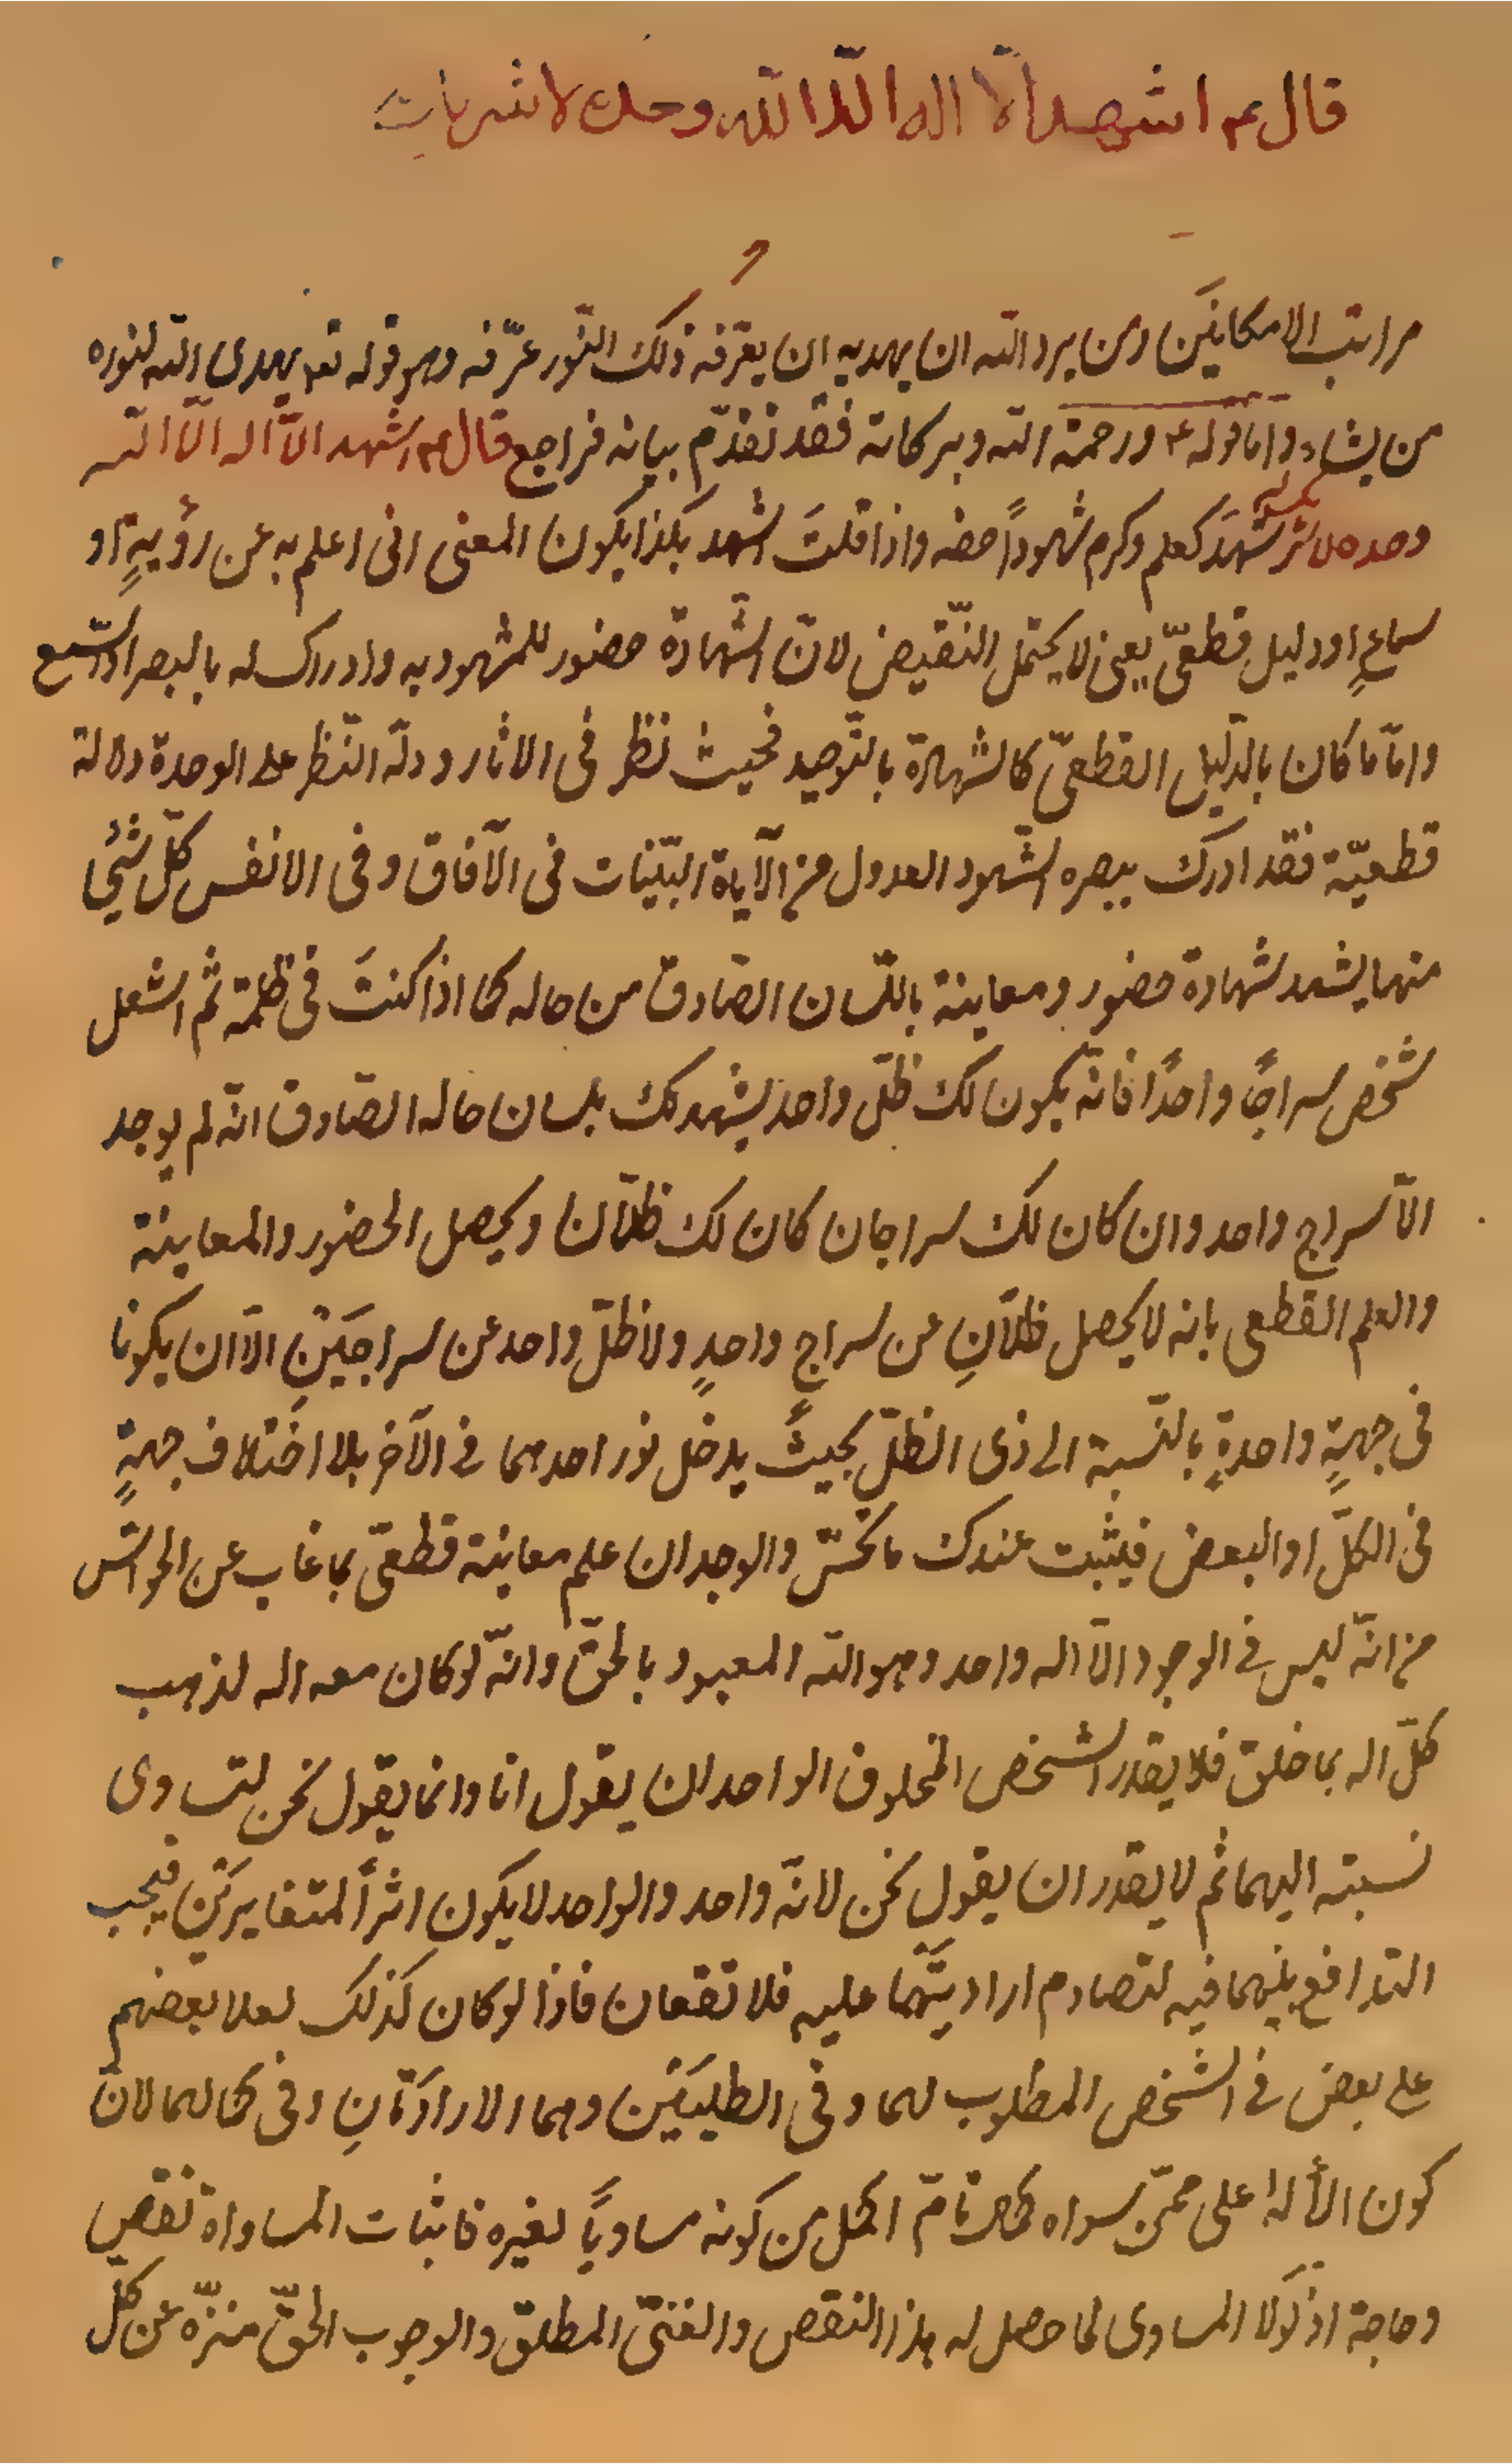 قال ع اشهد الّا اله الّا الله وحده لا شريك
مراتب الامكانيَن ومن يرد الله ان يهديه ان يعرّفه ذلك النّور عرّفه وهو قوله تع يهدى الله لنوره
من يشاء واما قوله ع ورحمة الله وبركاته فقد تقدّم بيانه فراجع قال ع اشهد الاّ اله الّا الله
وحده لا شريك له شهدَ كعلم وكرم شهوداً حضه واذا قلتَ اشهد بكذا يكون المعنى انى اعلم به عن رؤيةٍ او
سماعٍ او دليل قطعىّ يعنى لا يحتمل النّقيض لانّ الشّهادة حضور للمشهود به وادراك له بالبصر او السّمع
وامّا ما كان بالدّليل القطعىّ كالشهادة بالتّوحيد فحيث نظر فى الاثار ودلّه النّظر على الوحدة دلالة
قطعيّة فقد ادرك ببصره الشّهود العدول من الآياة البيّنات فى الآفاق وفى الانفس كلّ شئ
منها يشهد شهادة حضور ومعاينة باللّسان الصّادق من حاله كما اذا كنتَ فى ظلمة ثم اشعل
شخص سراجًا واحدًا فانّه يكون لك ظلّ واحد يشهد لك بلسان حاله الصّادق انّه لم يوجد
الاّ سراج واحد وان كان لك سراجان كان لك ظلّان ويحصل الحضور والمعاينة
والعلم القطعى بانه لا يحصل ظلاّنِ عن سراجٍ واحدٍ ولا ظلّ واحد عن سراجَيْنِ الاّ ان يكونا
فى جهةٍ واحدةٍ بالنّسبة الى ذى الظلّ بحيثُ يدخل نور احدهما فى الآخر بلا اختلاف جهةٍ
فى الكلّ او البعض فيثبت عندك بالحسّ والوجدان علم معاينة قطعىّ بما غاب عن الحواسّ
من انّه ليس فى الوجود الاّ اله واحد وهو الله المعبود بالحقّ وانّه لو كان معه اله لذهب
كلّ اله بما خلق فلا يقدر الشخص المخلوق الواحد ان يقول انا وانما يقول نحن لتساوى
نسبته اليهما ثم لا يقدر ان يقول نحن لانّه واحد والواحد لا يكون اثراً لمتغايرَيْن فيجب
التدافع بينهما فيه لتصادم اراديتَهما عليه فلا تقعان فاذا لو كان كذلك لعلا بعضهم
على بعض فى الشّخص المطلوب لهما وفى الطلبَيَن وهما الارادَتانِ وفى كمالهما لانّ
كون الألٰه اعلى ممّن سواه كمال تامّ اكمل من كونه مساويًا لغيره فاثبات المساواة نقص
وحاجة اذ لَولا المساوى لما حصل له هذا النقص والغنىّ المطلق والوجوب الحقّ منزّه عن كلّ